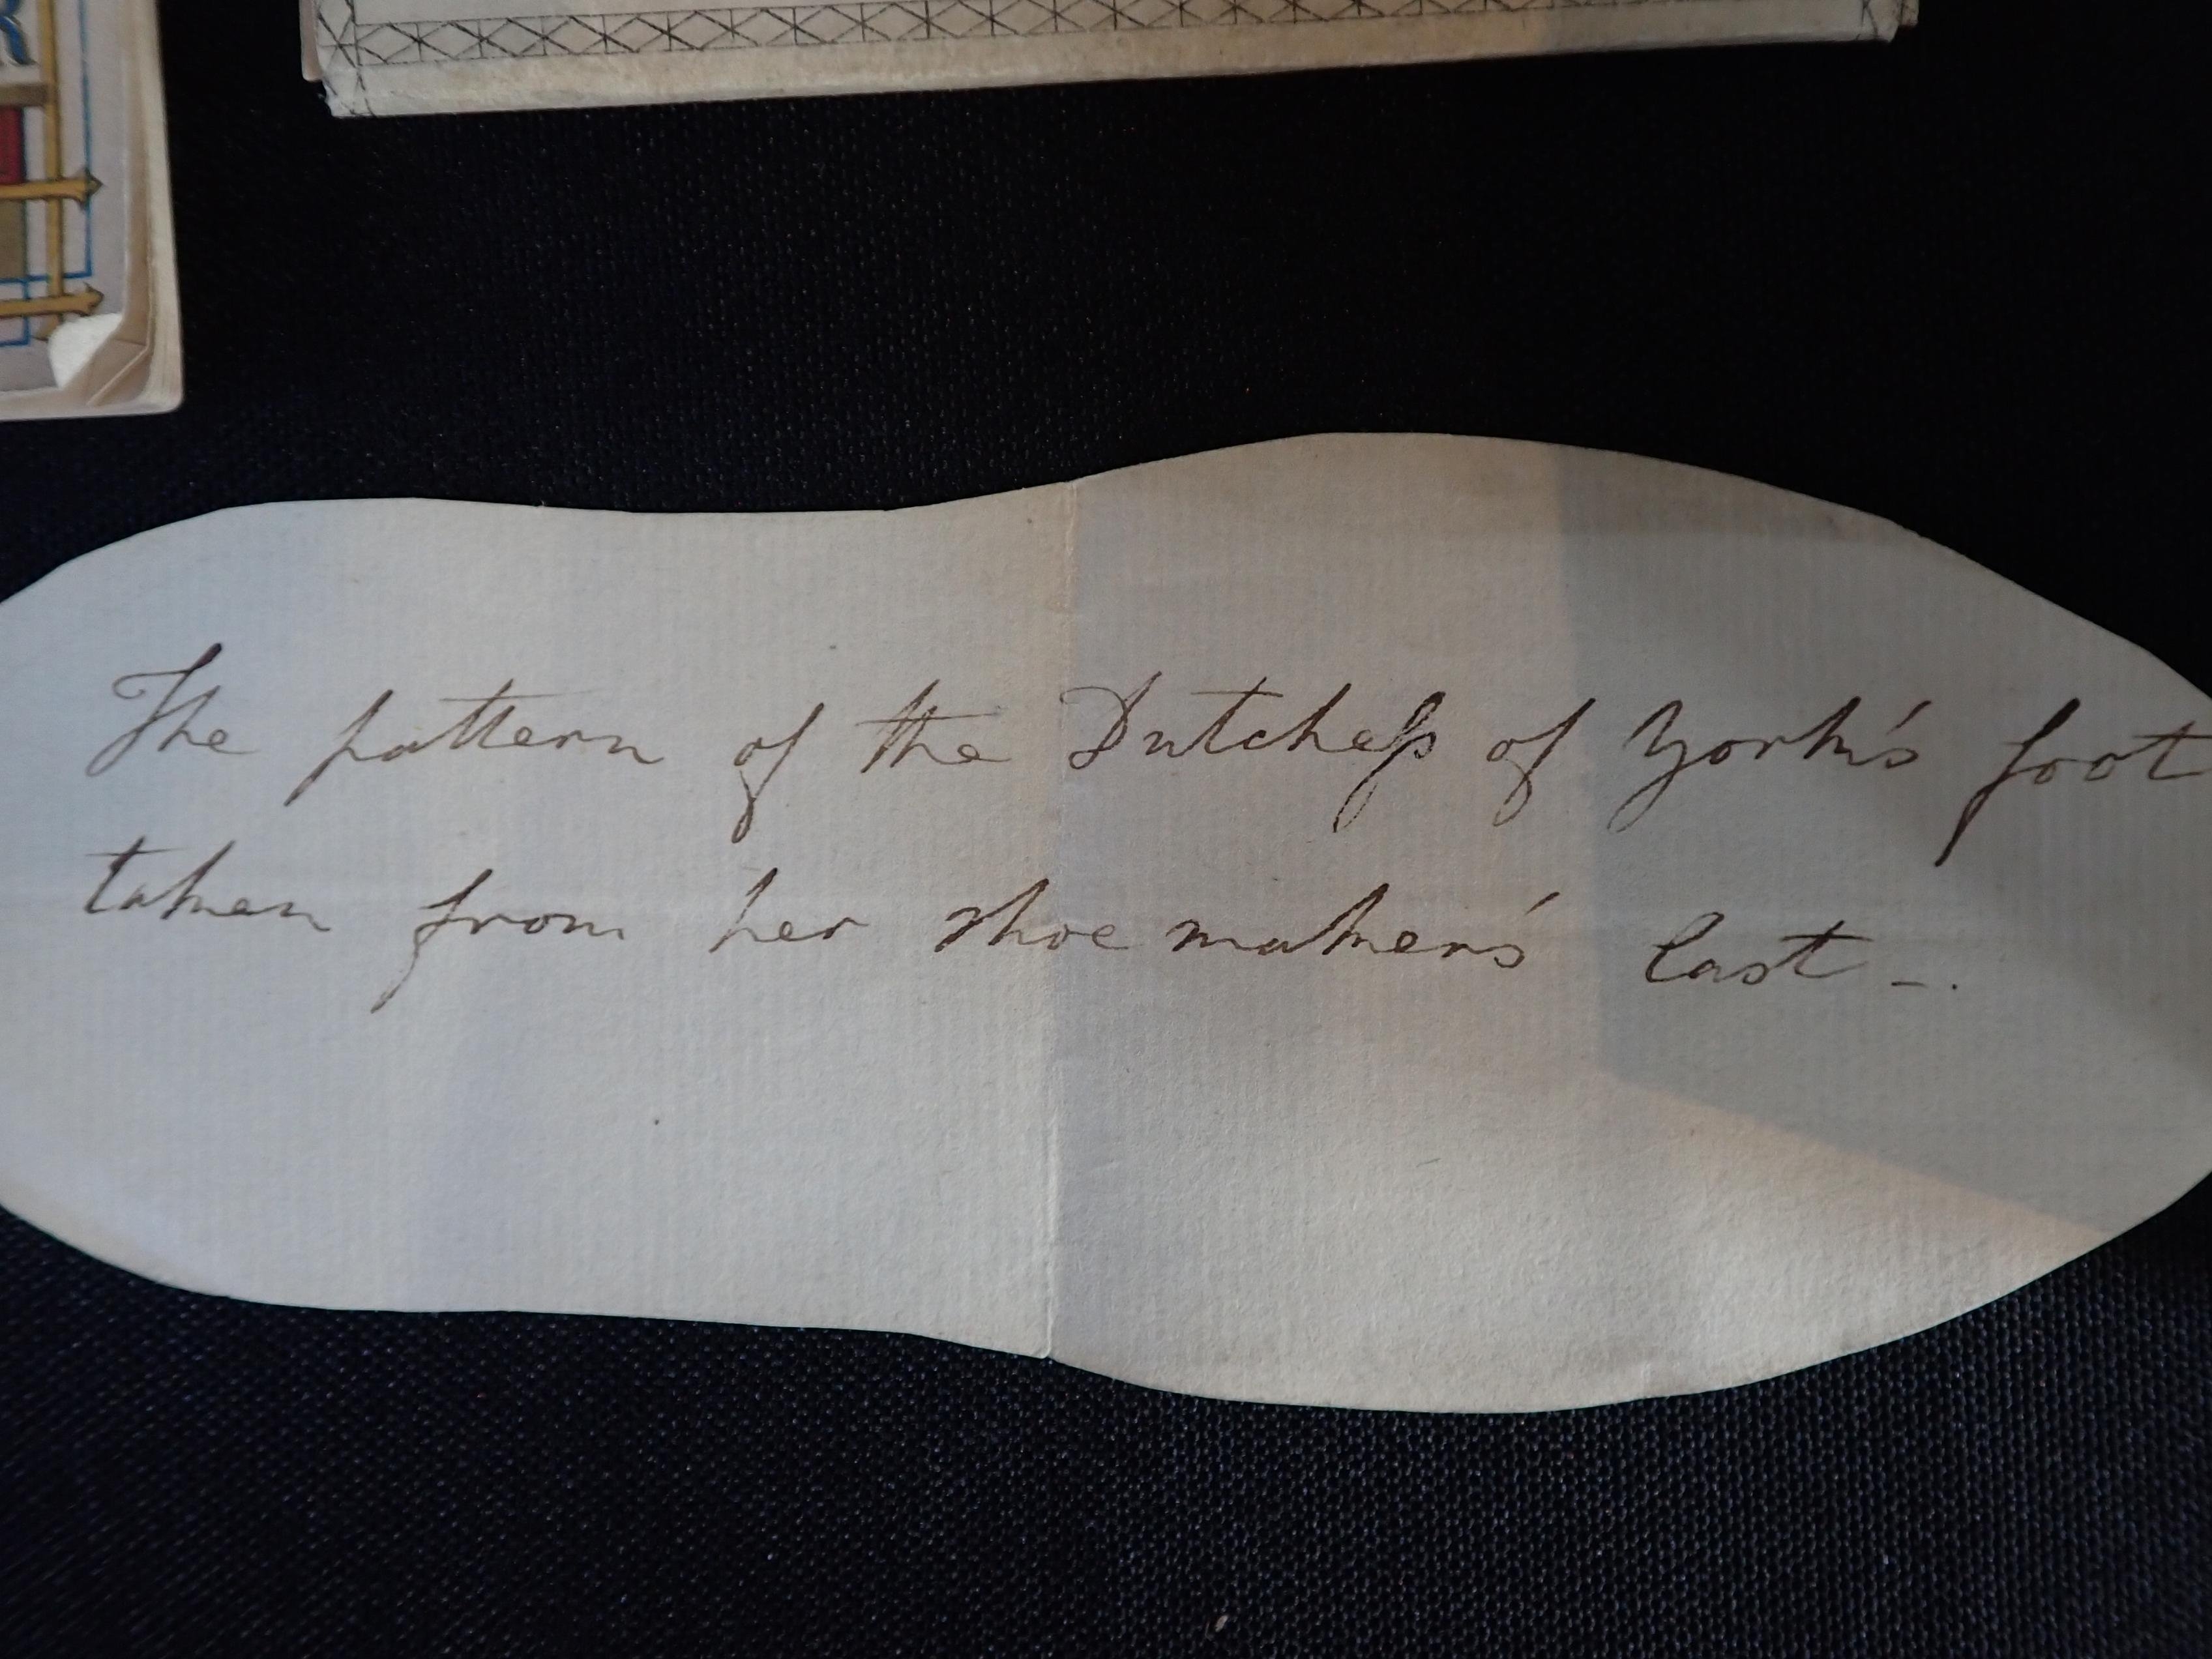 R
The pattern of the Dutcheſs of York's foot
taken from her shoe maker's last -.